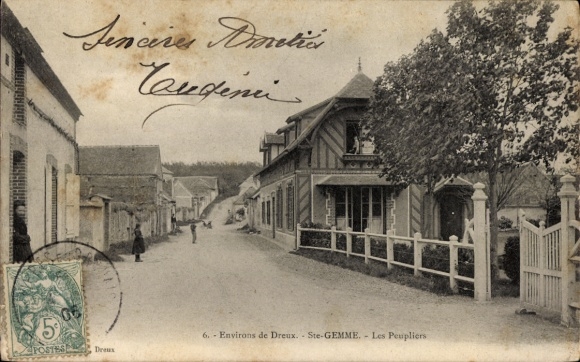 Sincères Amitiés
6. - Environs de Dreux. - Ste-GEMME. - Les Peupliers
5c
POSTES
Dreux